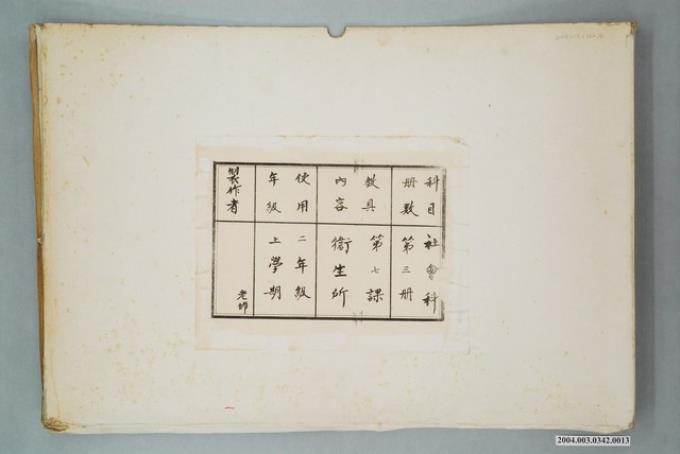 科目 社會科
冊數 第三冊
教具 第七課
內容 衛生所
使用 二年級
年級 上學期
製作者 老師
2004.003.0342.0013